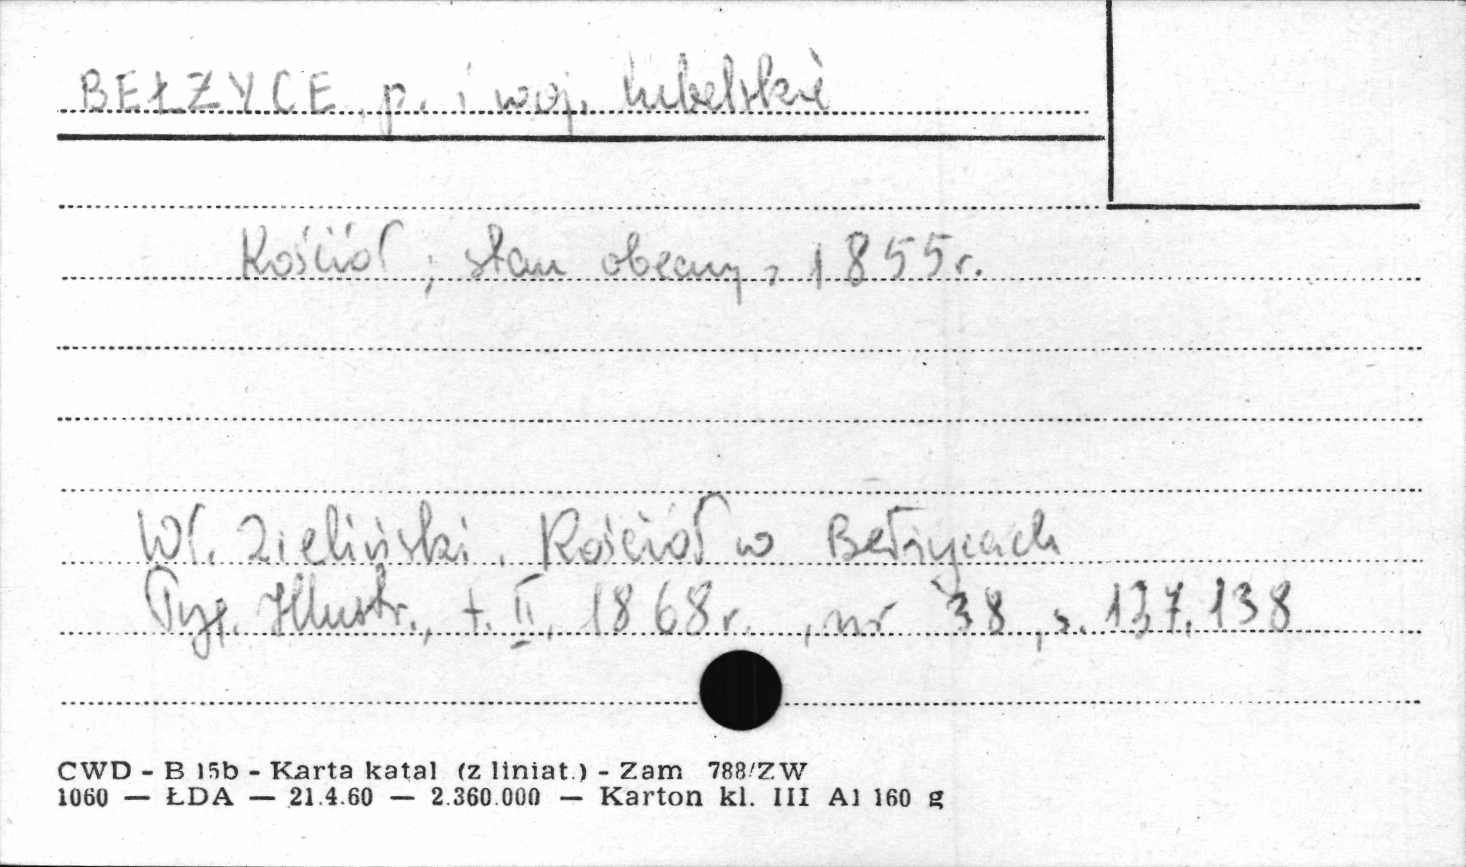 BEŁŻYCE, p. i woj. lubelskie
Kościół; stan obecny z 1855 r.
Wł. Zieliński, Kościół w Bełżycach
Tyg. Illustr., t. II, 1868 r., nr 38, s. 137, 138
CWD - B 15b - Karta katal (z liniat.) - Zam 788/ZW
1060 — ŁDA — 21.4.60 — 2.360.000 — Karton kl. III A1 160 g